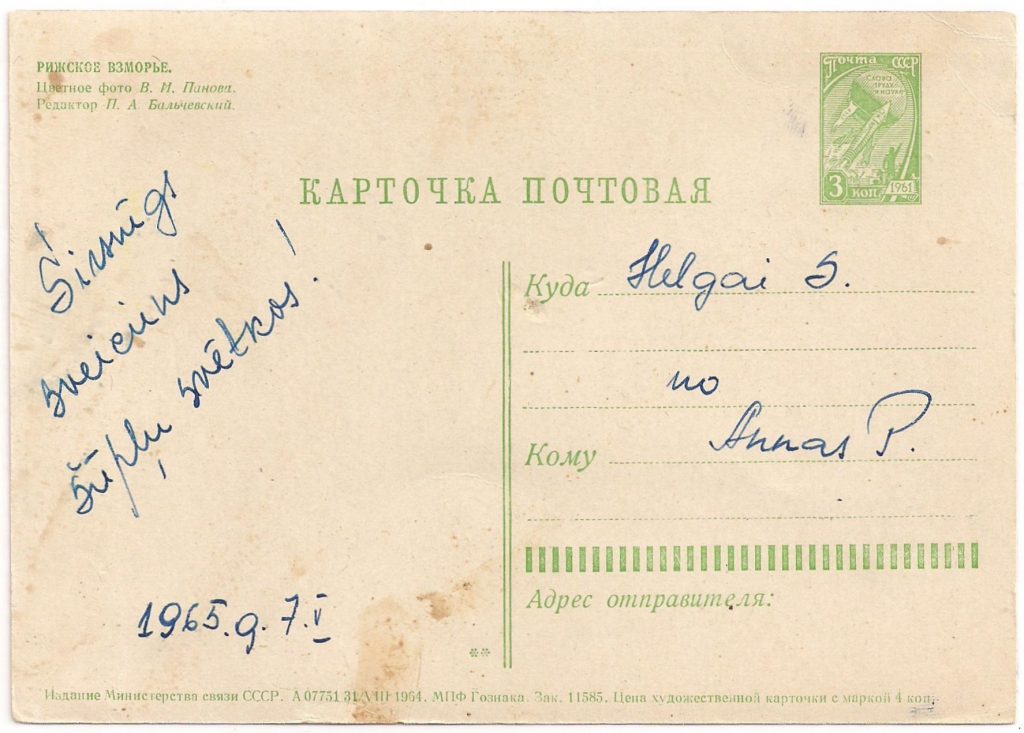 РИЖСКОЕ ВЗМОРЬЕ.
Цветное фото В. И. Панова.
Редактор П. А. Бальчевский.
Почта СССР
СЛАВА
ТРУДУ
И НАУКЕ
3 КОП
1961
КАРТОЧКА ПОЧТОВАЯ
Sirsnīgs
sveiciens
šūpļu svētkos!
1965.g. 7.V
Куда Helgai S.
no
Кому Annas P.
Адрес отправителя:
Издание Министерства связи СССР. А 07751 31/VIII 1964. МПФ Гознака. Зак. 11585. Цена художественной карточки с маркой 4 коп.